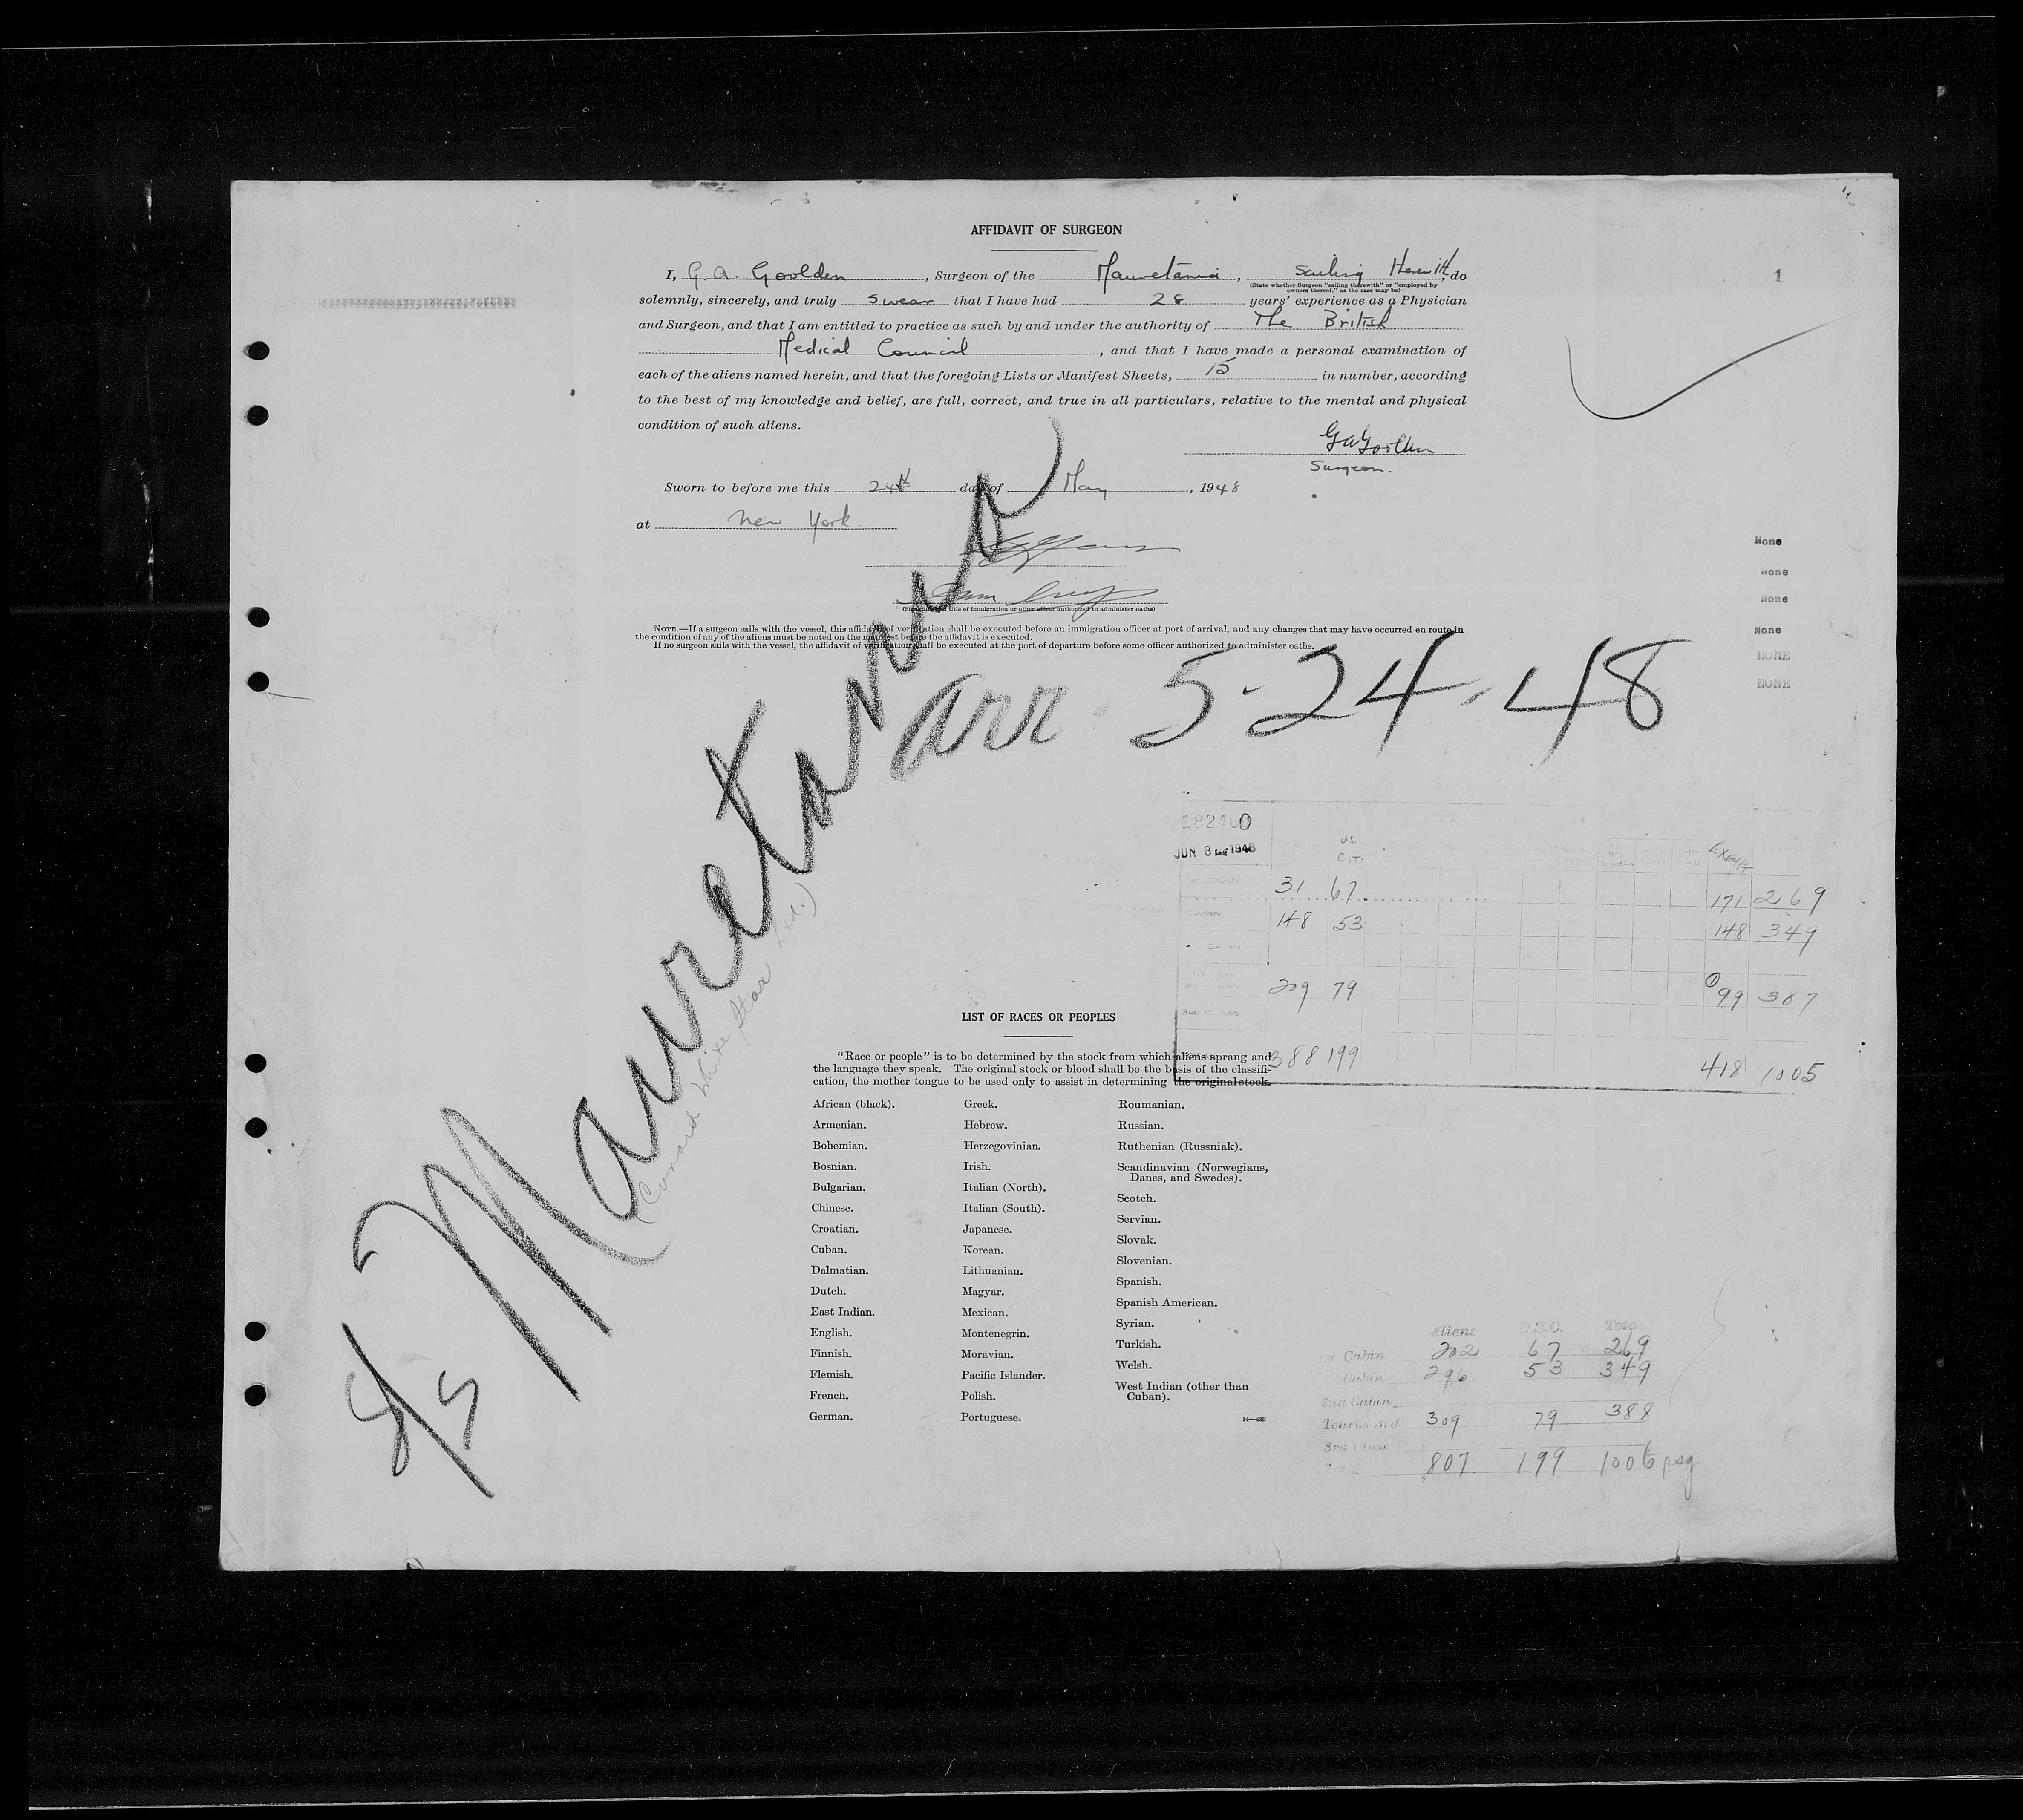 AFFIDAVIT OF SURGEON
1
I, G. A. Goolden, Surgeon of the Mauretania, Sailing Herewith, do
(State whether Surgeon "sailing therewith" or "employed by
owners thereof," as the case may be)
solemnly, sincerely, and truly swear that I have had 28 years' experience as a Physician
and Surgeon, and that I am entitled to practice as such by and under the authority of The British
Medical Council, and that I have made a personal examination of
each of the aliens named herein, and that the foregoing Lists or Manifest Sheets, 15 in number, according
to the best of my knowledge and belief, are full, correct, and true in all particulars, relative to the mental and physical
condition of such aliens.
GAGoolden
Surgeon.
Sworn to before me this 24th day of May, 1948
at New York
None
None
None
None
NONE
NONE
title of immigration or other officer authorized to administer oaths)
NOTE.—If a surgeon sails with the vessel, this affidavit of verification shall be executed before an immigration officer at port of arrival, and any changes that may have occurred en route in
the condition of any of the aliens must be noted on the manifest before the affidavit is executed.
If no surgeon sails with the vessel, the affidavit of verification shall be executed at the port of departure before some officer authorized to administer oaths.
S/S Mauretania
(Cunard White Star Ltd.)
arr 5-24-48
JUN 8 1948
U.S.
CIT.
Exempt
31 67 171 269
CABIN 148 53 148 349
CABIN
209 79 99 387
3RD CLASS
388 199 418 1005
LIST OF RACES OR PEOPLES
"Race or people" is to be determined by the stock from which aliens sprang and
the language they speak. The original stock or blood shall be the basis of the classifi-
cation, the mother tongue to be used only to assist in determining the original stock.
African (black).
Armenian.
Bohemian.
Bosnian.
Bulgarian.
Chinese.
Croatian.
Cuban.
Dalmatian.
Dutch.
East Indian.
English.
Finnish.
Flemish.
French.
German.
Greek.
Hebrew.
Herzegovinian.
Irish.
Italian (North).
Italian (South).
Japanese.
Korean.
Lithuanian.
Magyar.
Mexican.
Montenegrin.
Moravian.
Pacific Islander.
Polish.
Portuguese.
Roumanian.
Russian.
Ruthenian (Russniak).
Scandinavian (Norwegians,
Danes, and Swedes).
Scotch.
Servian.
Slovak.
Slovenian.
Spanish.
Spanish American.
Syrian.
Turkish.
Welsh.
West Indian (other than
Cuban).
Aliens U.S.C. Total
Cabin 202 67 269
Cabin 296 53 349
2nd Cabin
Tourist 3rd 309 79 388
3rd Class
807 199 1006 psg